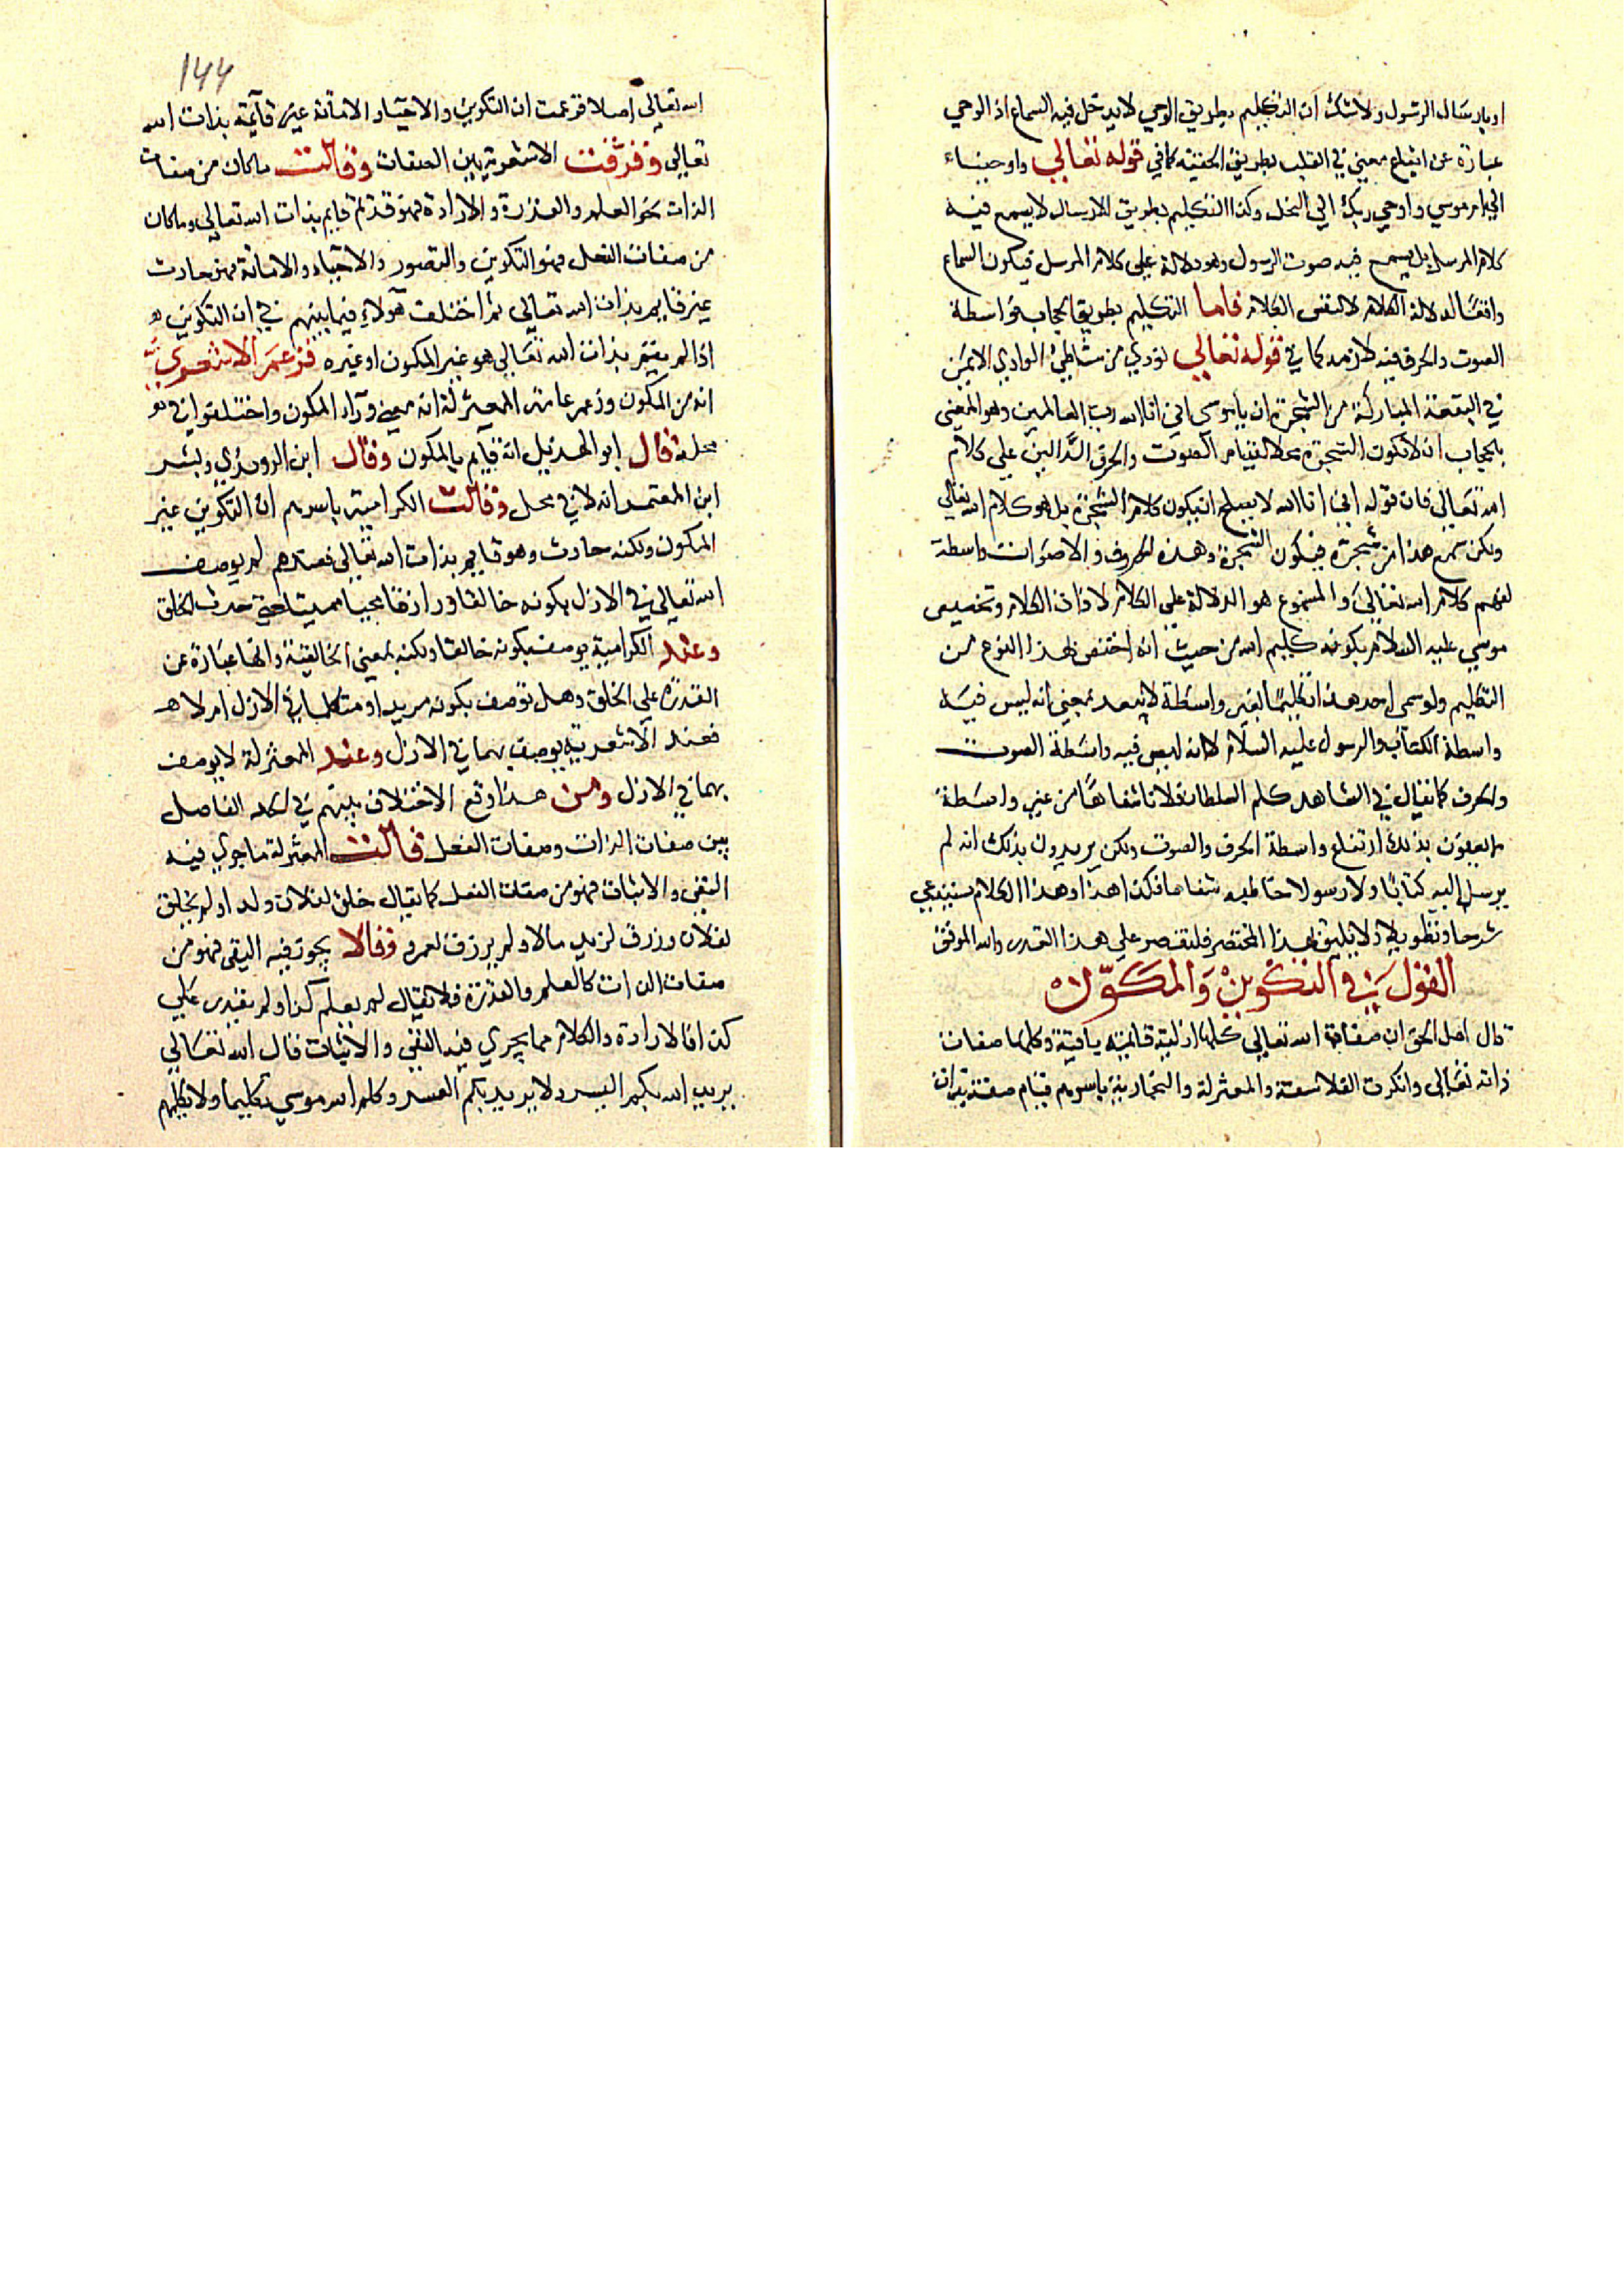 او بارسال الرسول ولا شك ان التكليم بطريق الوحي لا يدخل فيه السماع اذ الوحي
عبارة عن ايقاع معني في القلب بطريق الخفية كما في قوله تعالي واوحيناء
الي ام موسي واوحي ربك الي النحل وكذا التكليم بطريق الارسال لا يسمع فيه
كلام المرسل بل يسمع فيه صوت الرسول وهو دلالة علي كلام المرسل فيكون السماع
واقعا لدلالة الكلام لا لنفس الكلام فاما التكليم بطريق الحجاب فواسطة
الصوت والحرف فيه لازمة كما في قوله تعالي نودي من شاطئ الوادي الايمن
في البقعة المباركة من الشجرة ان يا موسي اني انا الله رب العالمين وهو المعني
بالحجاب ان تكون الشجرة محلا لقيام الصوت والحرف الدالين علي كلام
الله تعالي فان قوله اني انا الله لا يصلح ان يكون كلام الشجرة بل هو كلام الله تعالي
ولكن سمع هذا من شجرة فيكون الشجرة وهذه الحروف والاصوات واسطة
لفهم كلام الله تعالي والمسموع هو الدلالة علي الكلام لا ذات الكلام وتخصيص
موسي عليه السلام بكونه كليم الله من حيث انه اختص بهذا النوع من
التكليم ولو سمي احد هذا تكليما بغير واسطة لا يبعد بمعني انه ليس فيه
واسطة الكتاب والرسول عليه السلام لا انه ليس فيه واسطة الصوت
والحرف كما يقال في الشاهد كلم السلطان فلانا شفاها من غير واسطة
لا يعنون بذلك ارتفاع واسطة الحرف والصوت ولكن يريدون بذلك انه لم
يرسل اليه كتابا ولا رسولا خاطبه شفاها فكذا هذا وهذا الكلام يستدعي
شرحا وتطويلا لا يليق بهذا المختصر فلنقتصر علي هذا القدر والله الموفق
القول في التكوين والمكون
قال اهل الحق ان صفات الله تعالي كلها ازلية قائمة باقية وكلها صفات
ذاته تعالي وانكرت الفلاسفة والمعتزلة والنجارية باسرهم قيام صفة بذات
١٤٤
الله تعالي اصلا فزعمت ان التكوين والاحياء والاماتة غير قائمة بذات الله
تعالي وفرقت الاشعرية بين الصفات وقالت ما كان من صفات
الذات نحو العلم والقدرة والارادة فهو قديم قايم بذات الله تعالي وما كان
من صفات الفعل فهو التكوين والتصور والاحياء والاماتة فهو حادث
غير قايم بذات الله تعالي ثم اختلف هولاء فيما بينهم في ان التكوين هو
اذا لم يقم بذات الله تعالي هو غير المكون او غيره فزعمر الاشعري
انه من المكون وزعم عامة المعتزلة انه معني وراء المكون واختلفوا في
محله فقال ابو الهذيل انه قايم بالمكون وقال ابن الروندي وبشر
ابن المعتمر انه لا في محل وقالت الكرامية باسرهم ان التكوين غير
المكون ولكنه حادث وهو قايم بذات الله تعالي فعندهم لم يوصف
الله تعالي في الازل بكونه خالقا ورازقا محييا مميتا حتي حدث الخلق
وعند الكرامية يوصف بكونه خالقا ولكنه بمعني الخالقية وانها عبارة عن
القدرة علي الخلق وهل توصف بكونه مريدا ومتكلما في الازل ام لا
فعند الاشعرية يوصف بهما في الازل وعند المعتزلة لا يوصف
بهما في الازل ومن هذا وقع الاختلاف بينهم في الحد الفاصل
بين صفات الذات وصفات الفعل فقالت المعتزلة ما جري فيه
النفي والاثبات فهو من صفات الفعل كما يقال خلق لفلان ولد او لم يخلق
لفلان ورزق لزيد مالا ولم يرزق لعمرو وقالا يجوز فيه النفي فهو من
صفات الذات كالعلم والقدرة فلا يقال لم يعلم كذا ولم يقدر علي
كذا فالارادة والكلام مما يجري فيه النفي والاثبات قال الله تعالي
يريد الله بكم اليسر ولا يريد بكم العسر وكلم الله موسي تكليما ولا يكلمهم